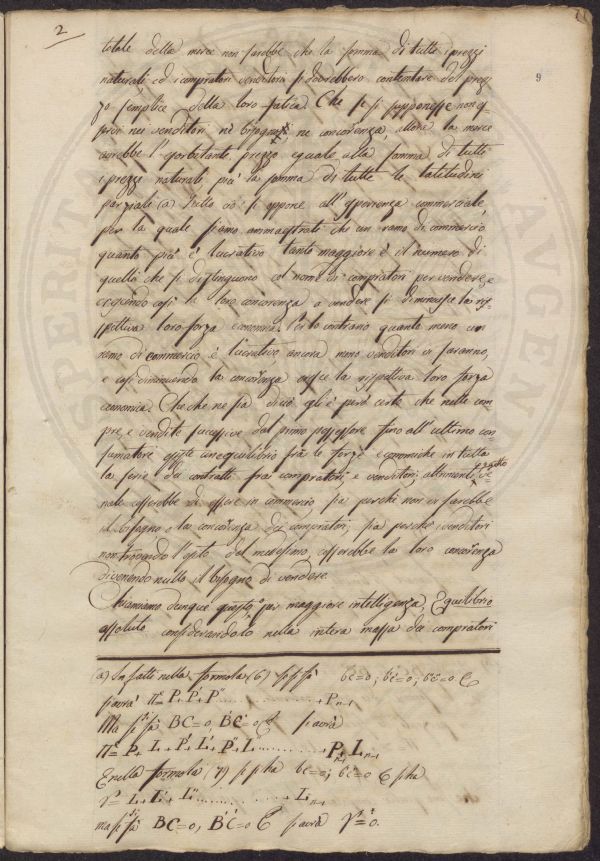 2
9
totale della merce non sarebbe che la somma di tutti i prezzi
naturali ed i compratori venditori si dovrebbero contentare del prez
zo semplice della loro fatica. Che se si supponesse non es
servi nei venditori nè bisogno, ne concorenza, allora la merce
avrebbe l'esorbitante prezzo eguale alla somma di tutti
i prezzi naturali più la somma di tutte le latitudini
parziali (a) Tutto ciò si oppone all'esperienza commerciale
per la quale siamo ammaestrati che un ramo di commercio
quanto più è lucrativo tanto maggiore è il numero di
quelli che si distinguono col nome di compratori per vendere, e
crescendo così la loro concorenza a vendere si diminuisce la ris-
spettiva loro forza economica. Per lo contrario quanto meno un
ramo di commercio è lucrativo ancora meno venditori vi saranno,
e così diminuendo la concorenza cresce la rispettiva loro forza
economica. Che che ne sia di ciò gli è però certo che nelle com
pre, e vendite successive dal primo possessore fino all'ultimo con
sumatore esiste un equilibrio frà le forze economiche in tutta
la serie dei contratti fra i compratori, e venditori; altrimenti
cesserebbe di essere in commercio sia perchè non vi sarebbe
il bisogno e la concorenza dei compratori, sia perchè i venditori
non trovando l'esito del medesimo cesserebbe la loro concorenza
divenendo nullo il bisogno di vendere.
Chiamiamo dunque questo, per maggiore intelligenza, Equilibrio
assoluto considerandolo nella intera massa dei compratori
(a) Infatti nella formola (6) si fà bc=0; b'c'=0; b''c''=0
si avrà Π = P+P'+P''..............+P n-1
Ma si fà BC=0, B'C'=0 si avrà
Π = P+L+P'+L'+P''+L''...........+P n-1+L n-1
E nella formola (7) si ha bc=0; b'c'=0 si ha
= L+L'+L''...........+L n-1
ma si fà BC=0, B'C'=0 si avrà =0.
SPERITA
AVGEN